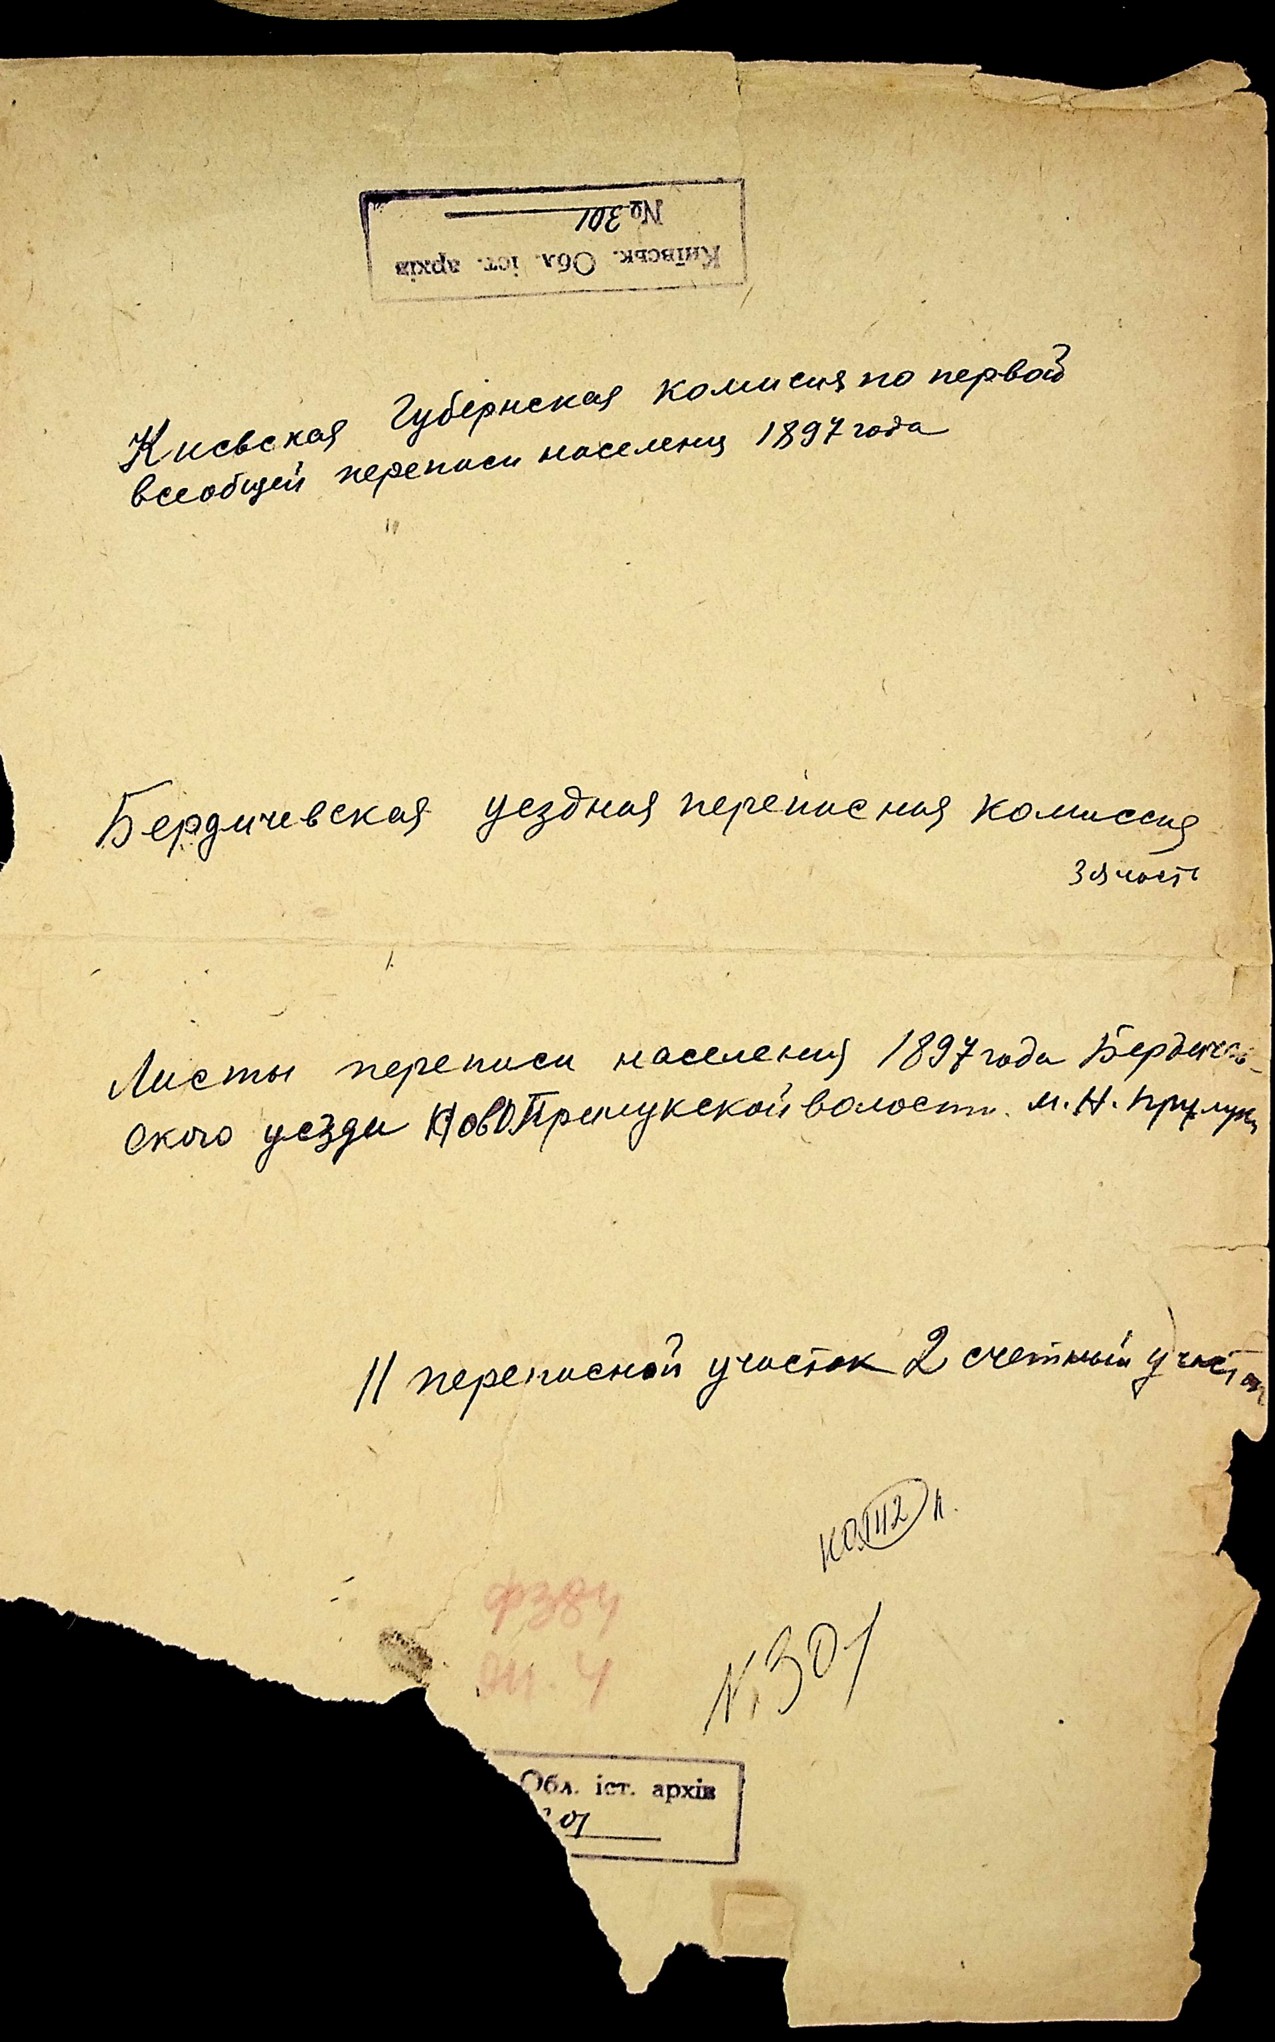 Київськ. Обл. іст. архів
№ 301
Киевская Губернская комисия по первой
всеобщей переписи населения 1897 года
Бердичевская уездная переписная комиссия
3я часть
Листы переписи населения 1897 года Бердичев-
ского уезда НовоПрилукской волости. м. Н. Прилуки
II переписной участок 2 счетный участок
112 л.
ф 384
оп. 4
№ 301
Обл. іст. архів